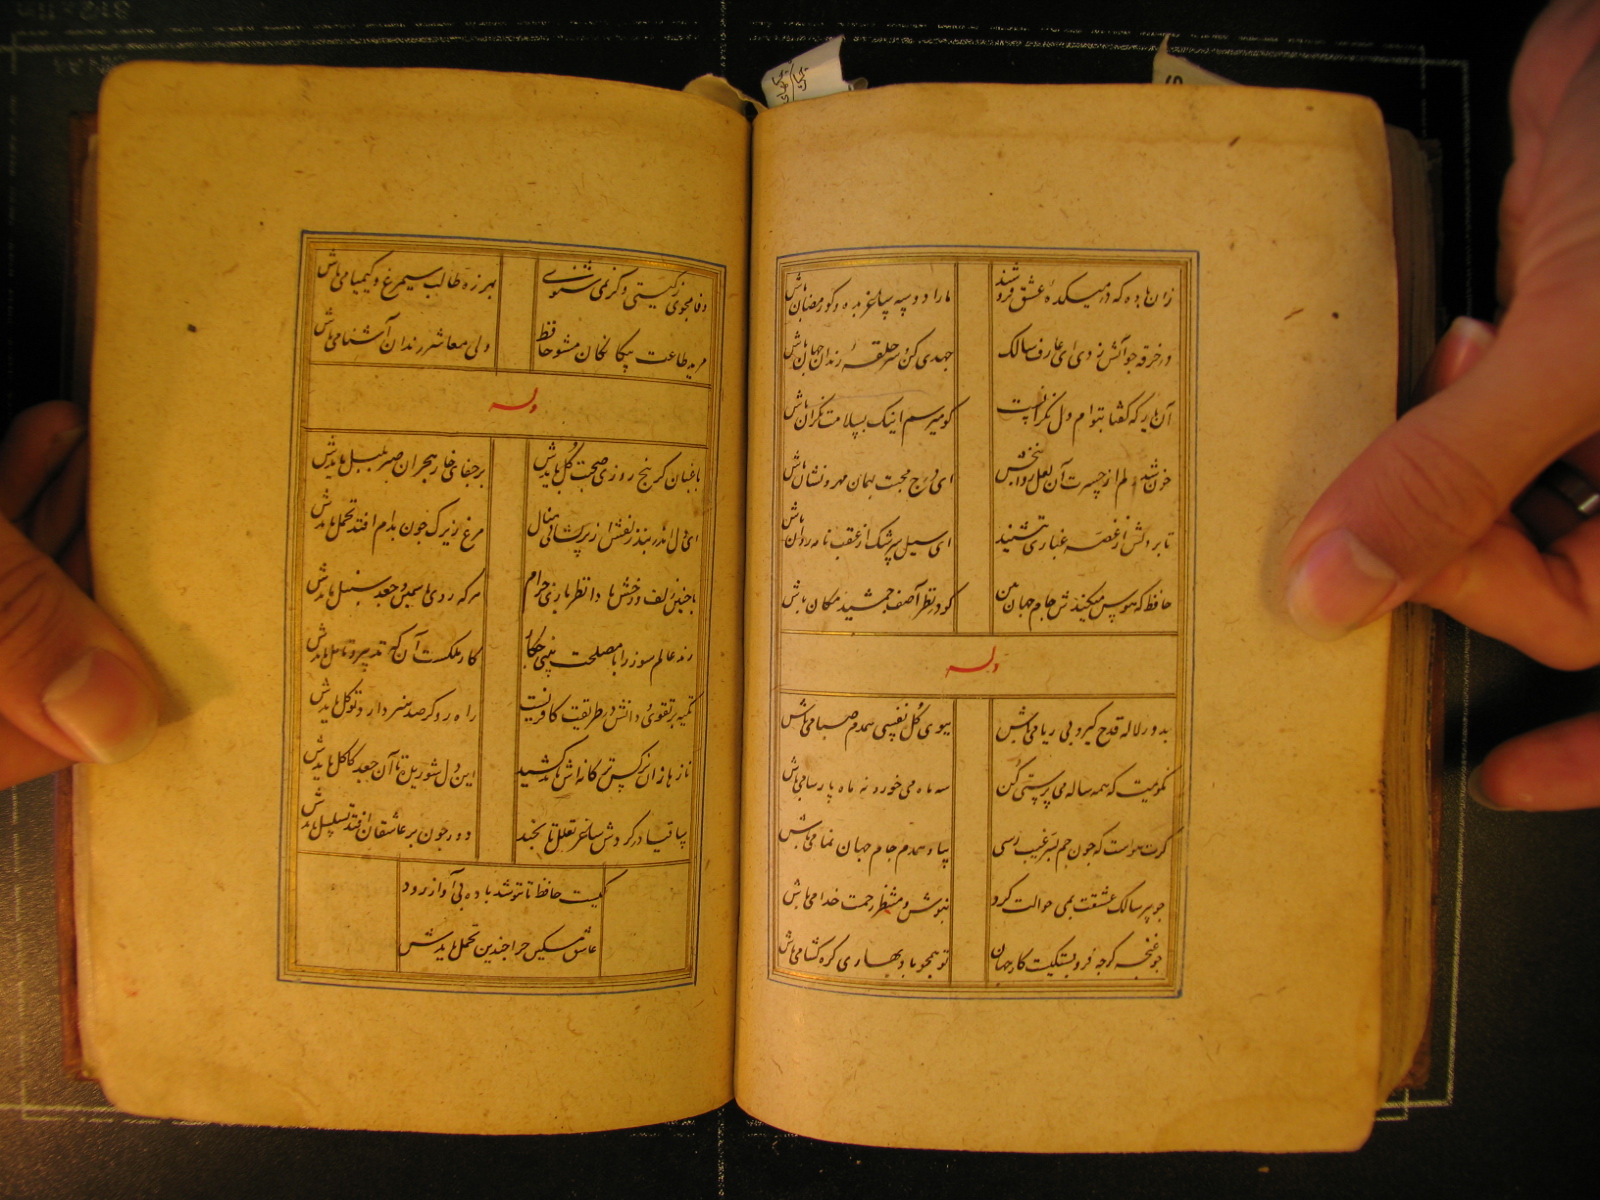 زان باده که در میکدهٔ عشق فروشند ما را دو سه ساغر بده و کو رمضان باش
در خرقه جو آتش زدی ای عارف سالک جهدی کن و سر حلقهٔ رندان جهان باش
آن یار که کفتا بتوام دل نکرانست کو میرسم اینک بسلامت نکران باش
خون شد دلم از حسرت آن لعل روانبخش ای درج محبت بهمان مهر و نشان باش
تا بر دلش از غصه غباری ننشیند ای سیل سرشک از عقب نامه روان باش
حافظ که هوس میکندش جام جهان بین کو در نظر آصف جمشید مکان باش
وله
بدور لاله قدح کیر و بی ریا می باش ببوی کل نفسی همدم صبا می باش
نکویمت که همه ساله می پرستی کن سه ماه می خور و نه ماه پارسا می باش
کرت هواست که جون جم بسر غیب رسی بیا و همدم جام جهان نما می باش
جو پیر سالک عشقت بمی حوالت کرد بنوش و منتظر رحمت خدا می باش
جو غنجه کرجه فروبستکیست کار جهان تو همجو باد بهاری کره کشا می باش
وفا مجوی ز کیتی و کر نمی شنوی بهرزه طالب سیمرغ و کیمیا می باش
مرید طاعت بیکانکان مشو حافظ ولی معاشر رندان آشنا می باش
وله
باغبان کر پنج روزی صحبت کل بایدش بر جفای خار هجران صبر بلبل بایدش
ای دل اندر بند زلفش از پریشانی منال مرغ زیرک جون بدام افتد تحمل بایدش
با جنین زلف و رخش بادا نظر بازی حرام هر که روی یاسمین و جعد سنبل بایدش
رند عالم سوز را با مصلحت بینی جکار کار ملکست آن که تدبیر و تامل بایدش
تکیه بر تقوی و دانش در طریقت کافریست راه رو کر صد هنر دارد توکل بایدش
نازها زان نرکس ترکانه اش باید کشید این دل شوریده تا آن جعد کاکل بایدش
ساقیا در کردش ساغر تعلل تا بچند دور جون بر عاشقان افتد تسلسل بایدش
کیست حافظ تا ننوشد باده بی آواز رود
عاشق مسکین جرا جندین تحمل بایدش